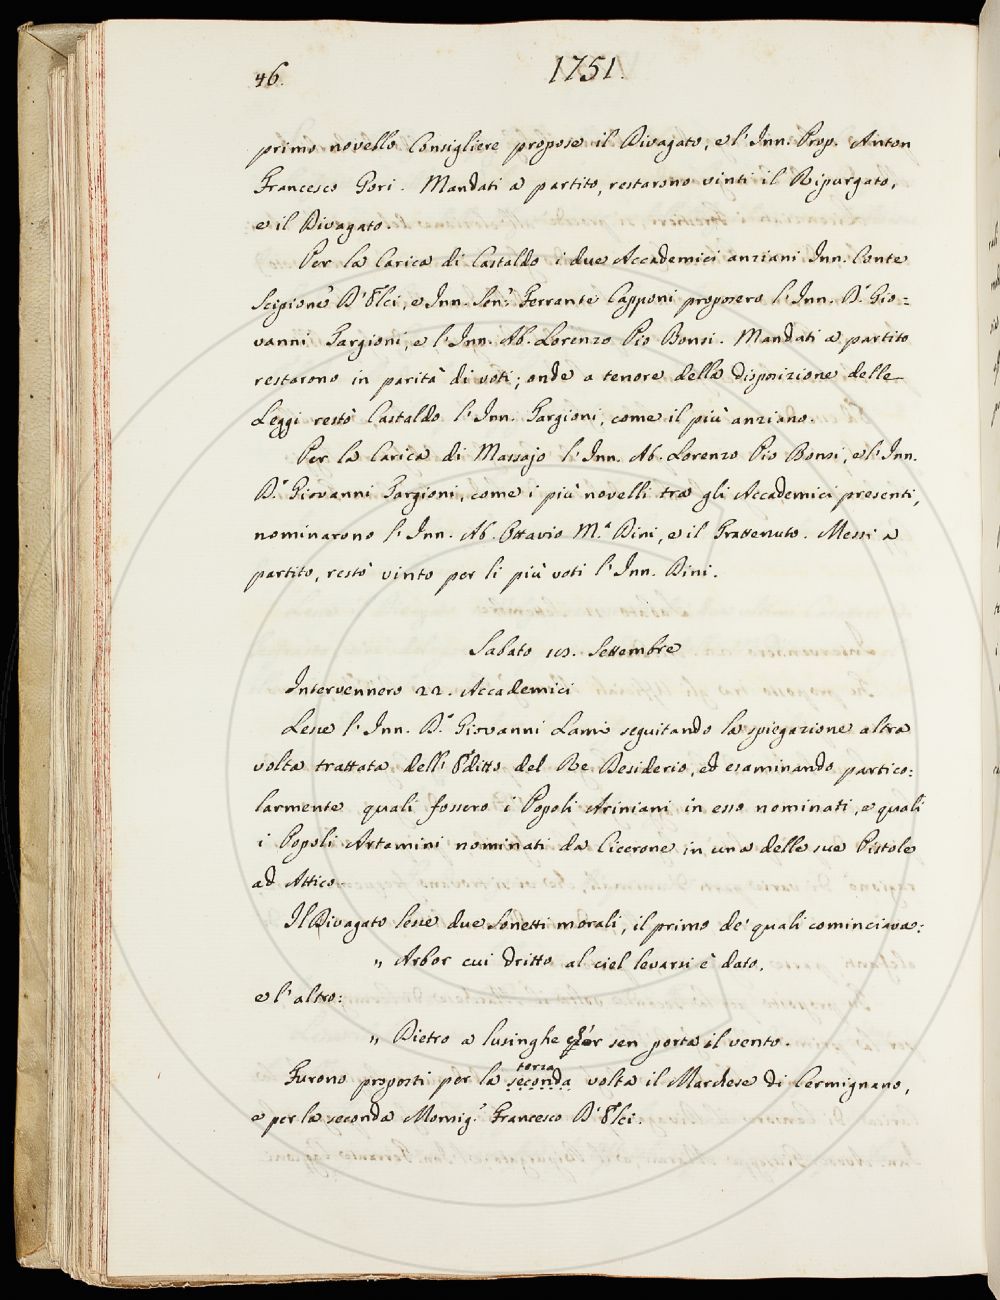 46.
1751.
primo novello Consigliere propose il Divagato, e l'Inn. Prop. Anton
Francesco Gori. Mandati a partito, restarono vinti il Ripurgato,
e il Divagato.
Per la Carica di Castaldo i due Accademici anziani Inn. Conte
Scipione D'Elci, e Inn. Sen.e Ferrante Capponi proposero l'Inn. D.r Gio=
vanni Targioni, e l'Inn. Ab. Lorenzo Pio Bonsi. Mandati a partito
restarono in parità di voti; onde a tenore della disposizione delle
Leggi restò Castaldo l'Inn. Targioni, come il più anziano.
Per la Carica di Massajo l'Inn. Ab. Lorenzo Pio Bonsi, e l'Inn.
D.r Giovanni Targioni, come i più novelli tra gli Accademici presenti,
nominarono l'Inn. Ab. Ottavio M.a Dini, e il Trattenuto. Messi a
partito, restò vinto per li più voti l'Inn. Dini.
Sabato Settembre
Intervennero 22. Accademici
Lesse l'Inn. D.r Giovanni Lami seguitando la spiegazione altra
volta trattata dell'Editto del Re Desiderio, ed esaminando partico:
larmente quali fossero i Popoli Ariniani in esso nominati, e quali
i Popoli Artamini nominati da Cicerone in una delle sue Pistole
ad Attico.
Il Divagato lesse due Sonetti morali, il primo de' quali cominciava:
„ Arbor cui dritto al ciel levarsi è dato,
e l'altro:
„ Dietro a lusinghe ch'or sen porta il vento.
Furono proposti per la seconda terza volta il Marchese di Cermignano,
e per la seconda Monsig.r Francesco D'Elci.